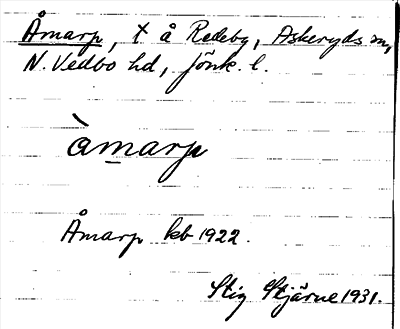 Åmarp, t å Redeby, Askeryds sn,
N. Vedbo hd, Jönk. l.
àmarp
Åmarp kb 1922.
Stig Stjärne 1931.